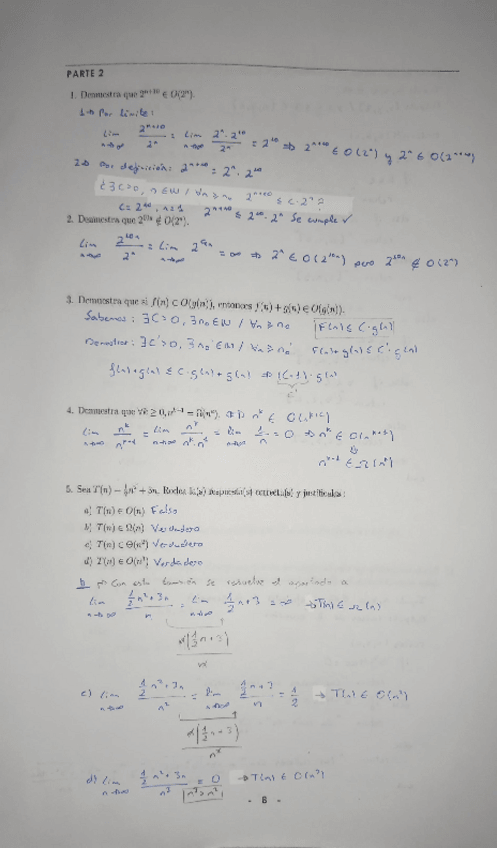 PARTE 2
1. Demuestra que 2^{n+10} ∈ O(2^n).
1→ Por límite:
lim_{n→∞} 2^{n+10}/2^n = lim_{n→∞} 2^n · 2^{10}/2^n = 2^{10} ⇒ 2^{n+10} ∈ O(2^n) y 2^n ∈ O(2^{n+10})
2→ Por definición: 2^{n+10} = 2^n · 2^{10}
¿∃ C>0, n ∈ ℕ / ∀n ≥ n₀ 2^{n+10} ≤ C · 2^n ?
C = 2^{10}, n = 1 2^{n+10} ≤ 2^{10} · 2^n Se cumple ✓
2. Demuestra que 2^{10n} ∉ O(2^n).
lim_{n→∞} 2^{10n}/2^n = lim_{n→∞} 2^{9n} = ∞ ⇒ 2^n ∈ O(2^{10n}) pero 2^{10n} ∉ O(2^n)
3. Demuestra que si f(n) ∈ O(g(n)), entonces f(n) + g(n) ∈ O(g(n)).
Sabemos: ∃ C > 0, ∃ n₀ ∈ ℕ / ∀n ≥ n₀ f(n) ≤ C · g(n)
Demostrar: ∃ C' > 0, ∃ n₀' ∈ ℕ / ∀n ≥ n₀' f(n) + g(n) ≤ C' · g(n)
f(n) + g(n) ≤ C · g(n) + g(n) ⇒ (C+1) · g(n)
C'
4. Demuestra que ∀k ≥ 0, n^{k+1} = Ω(n^k).
n^k ∈ O(n^{k+1})
lim_{n→∞} n^k/n^{k+1} = lim_{n→∞} n^k/n^k · n^1 = lim_{n→∞} 1/n = 0 ⇒ n^k ∈ O(n^{k+1})
n^{k+1} ∈ Ω(n^k)
5. Sea T(n) = ½n² + 3n. Rodea la(s) respuesta(s) correcta(s) y justifícalas:
a) T(n) ∈ O(n) Falso
b) T(n) ∈ Ω(n) Verdadero
c) T(n) ∈ Θ(n²) Verdadero
d) T(n) ∈ O(n³) Verdadero
b Con esto también se resuelve el apartado a
lim_{n→∞} ½n² + 3n/n = lim_{n→∞} ½n + 3 = ∞ → T(n) ∈ Ω(n)
n(½n + 3)/n
c) lim_{n→∞} ½n² + 3n/n² = lim_{n→∞} ½n + 3/n = ½ → T(n) ∈ Θ(n²)
n(½n + 3)/n²
d) lim_{n→∞} ½n² + 3n/n³ = 0 → T(n) ∈ O(n³)
n³ > n²
- 8 -